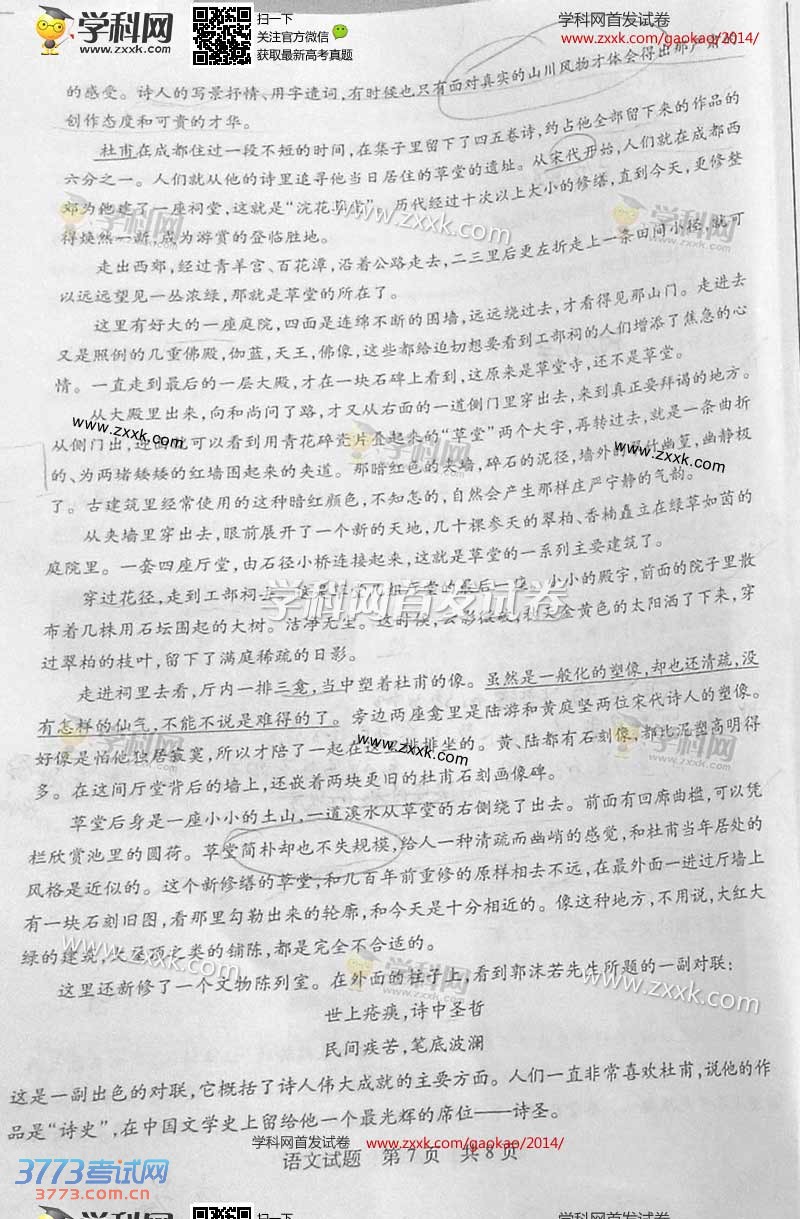 学科网
www.zxxk.com
扫一下
关注官方微信
获取最新高考真题
学科网首发试卷
www.zxxk.com/gaokao/2014/
的感受。诗人的写景抒情、用字遣词,有时候也只有面对真实的山川风物才体会得出那严肃的
创作态度和可贵的才华。
杜甫在成都住过一段不短的时间,在集子里留下了四五卷诗,约占他全部留下来的作品的
六分之一。人们就从他的诗里追寻他当日居住的草堂的遗址。从宋代开始,人们就在成都西
郊为他建了一座祠堂,这就是“浣花草堂”。历代经过十次以上大小的修缮,直到今天,更修整
得焕然一新,成为游赏的登临胜地。
走出西郊,经过青羊宫、百花潭,沿着公路走去,二三里后更左折走上一条田间小径,就可
以远远望见一丛浓绿,那就是草堂的所在了。
这里有好大的一座庭院,四面是连绵不断的围墙,远远绕过去,才看得见那山门。走进去
又是照例的几重佛殿,伽蓝,天王,佛像,这些都给迫切想要看到工部祠的人们增添了焦急的心
情。一直走到最后的一层大殿,才在一块石碑上看到,这原来是草堂寺,还不是草堂。
从大殿里出来,向和尚问了路,才又从右面的一道侧门里穿出去,来到真正要拜谒的地方。
从侧门出,迎面就可以看到用青花碎瓷片叠起来的“草堂”两个大字,再转过去,就是一条曲折
的、为两堵矮矮的红墙围起来的夹道。那暗红色的夹墙,碎石的泥径,墙外的慈竹幽篁,幽静极
了。古建筑里经常使用的这种暗红颜色,不知怎的,自然会产生那样庄严宁静的气韵。
从夹墙里穿出去,眼前展开了一个新的天地,几十棵参天的翠柏、香楠矗立在绿草如茵的
庭院里。一套四座厅堂,由石径小桥连接起来,这就是草堂的一系列主要建筑了。
穿过花径,走到工部祠去。这是几座厅堂的最后一座。小小的殿宇,前面的院子里散
布着几株用石坛围起的大树。洁净无尘。这时候,云影微敛,秋天金黄色的太阳洒了下来,穿
过翠柏的枝叶,留下了满庭稀疏的日影。
走进祠里去看,厅内一排三龛,当中塑着杜甫的像。虽然是一般化的塑像,却也还清疏,没
有怎样的仙气,不能不说是难得的了。旁边两座龛里是陆游和黄庭坚两位宋代诗人的塑像。
好像是怕他独居寂寞,所以才陪了一起在这里排排坐的。黄、陆都有石刻像,都比泥塑高明得
多。在这间厅堂背后的墙上,还嵌着两块更旧的杜甫石刻画像碑。
草堂后身是一座小小的土山,一道溪水从草堂的右侧绕了出去。前面有回廊曲槛,可以凭
栏欣赏池里的圆荷。草堂简朴却也不失规模,给人一种清疏而幽峭的感觉,和杜甫当年居处的
风格是近似的。这个新修缮的草堂,和几百年前重修的原样相去不远,在最外面一进过厅墙上
有一块石刻旧图,看那里勾勒出来的轮廓,和今天是十分相近的。像这种地方,不用说,大红大
绿的建筑,大屋顶之类的铺陈,都是完全不合适的。
这里还新修了一个文物陈列室。在外面的柱子上,看到郭沫若先生所题的一副对联:
世上疮痍,诗中圣哲
民间疾苦,笔底波澜
这是一副出色的对联,它概括了诗人伟大成就的主要方面。人们一直非常喜欢杜甫,说他的作
品是“诗史”,在中国文学史上留给他一个最光辉的席位——诗圣。
学科网首发试卷
www.zxxk.com/gaokao/2014/
语文试题 第7页 共8页
3773考试网
3773.com.cn
学科网
扫一下
学科网首发试卷